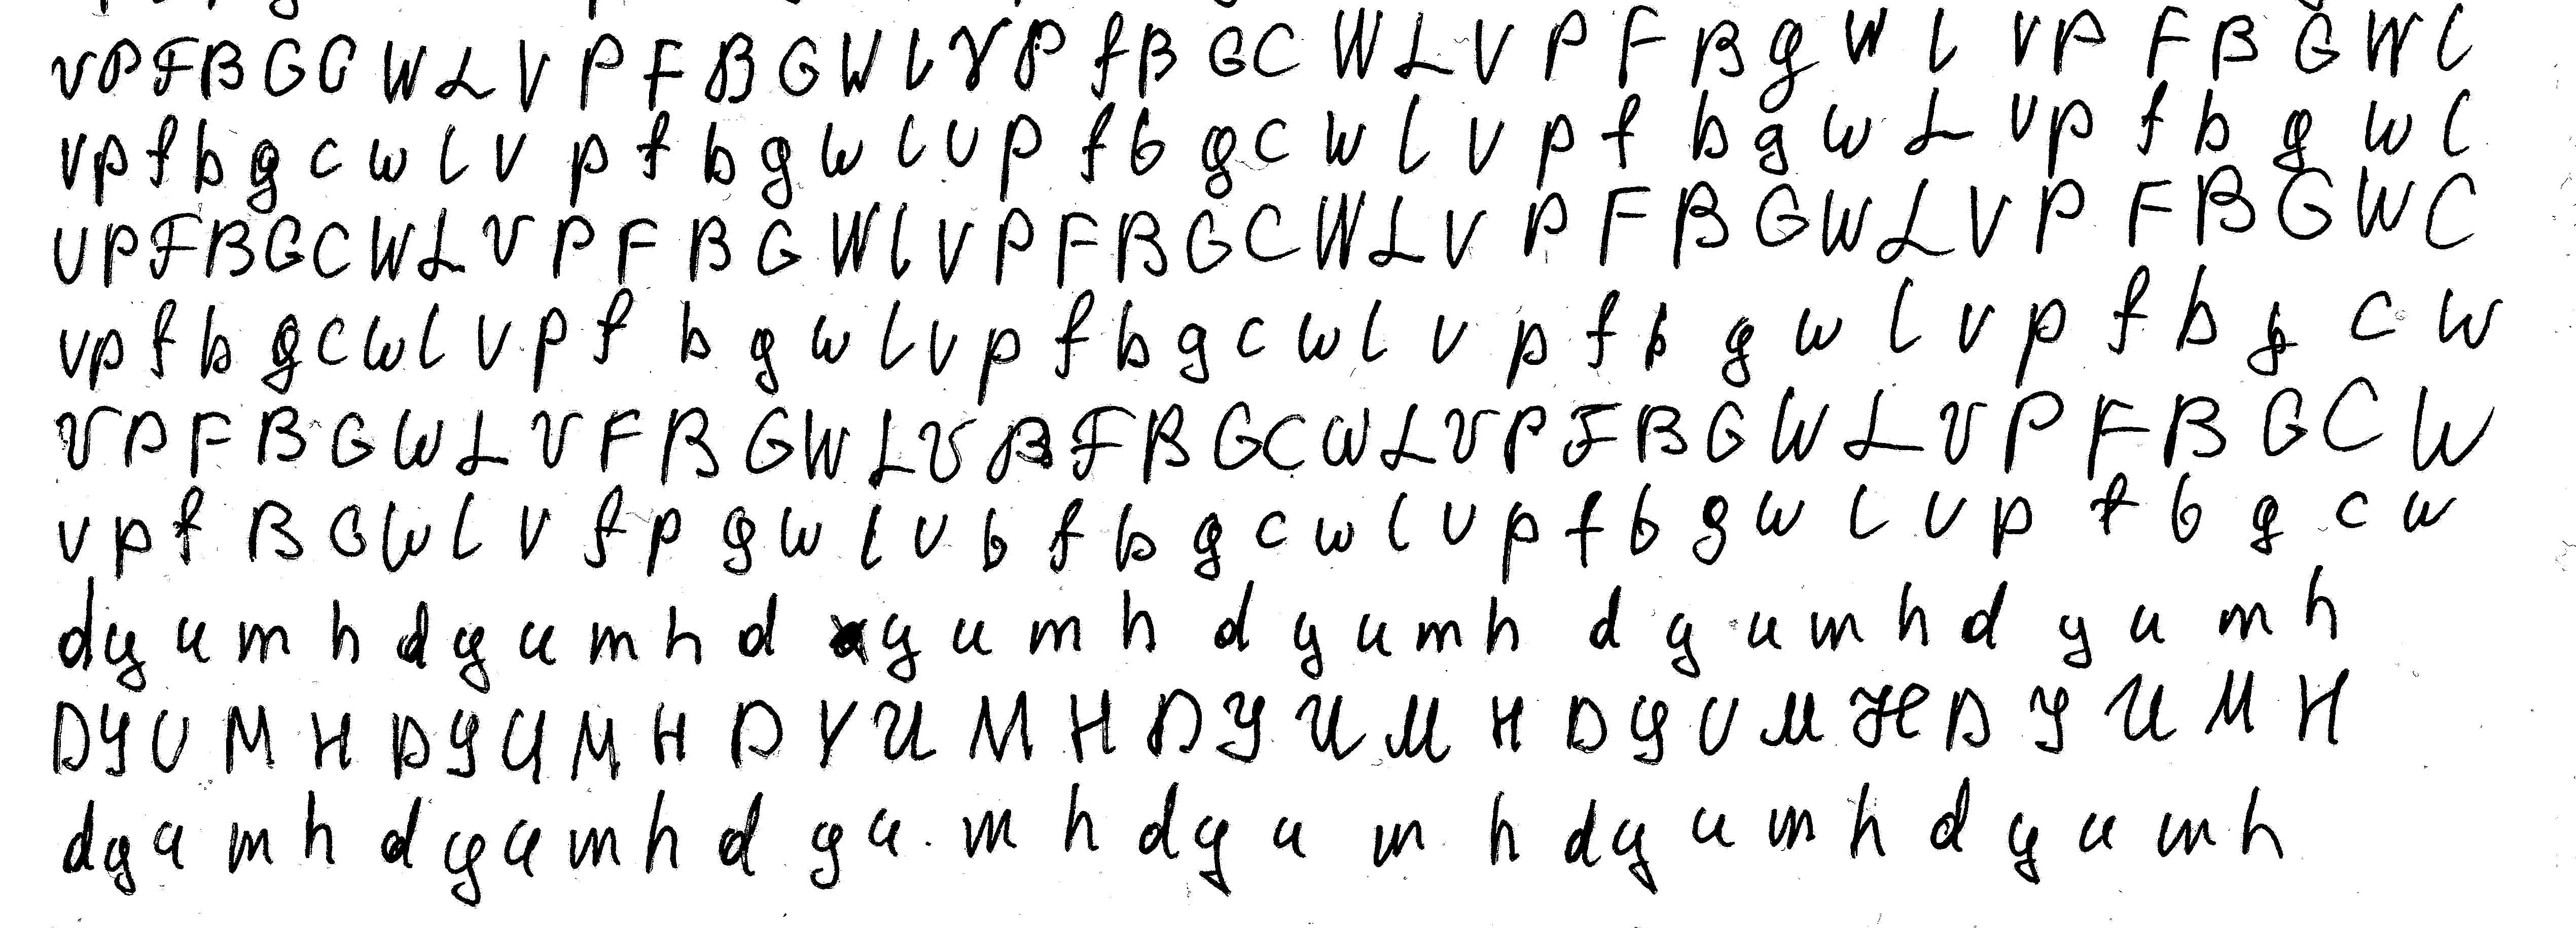 V P F B G C W L V P F B G W L V P f B G C W L V P F B g W l V P F B G W L
v p f b g c w l v p f b g w l v p f b g c w l v p f b g w L v p f b g w l
V P F B G C W L V P F B G W L V P F B G C W L V P F B G W L V P F B G W C
v p f b g c w l v p f b g w l v p f b g c w l v p f b g w l v p f b g c w
V P F B G W L V F B G W L V B F B G C W L V P F B G W L V P F B G C W
v p f B G W l V f p g w l v b f b g c w l v p f b g w l v p f b g c w
d y u m h d y u m h d y u m h d y u m h d y u m h d y u m h
D Y U M H D Y U M H D Y U M H D Y U M H D Y U M H D Y U M H
d y u m h d y u m h d y u m h d y u m h d y u m h d y u m h